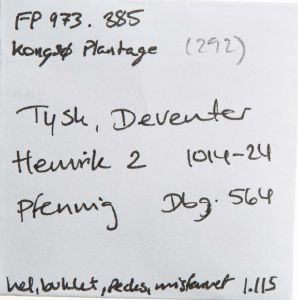 FP 973.385
Kongsø Plantage (292)
Tysk, Deventer
Henrik 2 1014-24
Pfennig Dbg. 564
hel, bukket, pedes, misfarvet 1.115